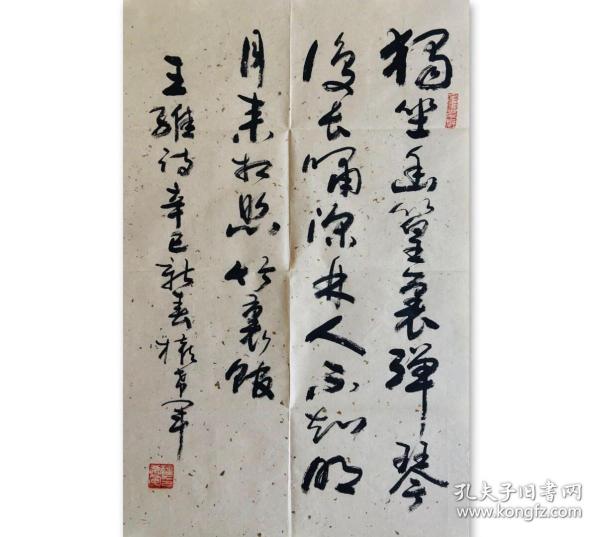 獨坐幽篁裏彈琴
復長嘯深林人不知明
月来相照竹裏館
王維诗辛巳新春
孔夫子旧书网
www.kongfz.com